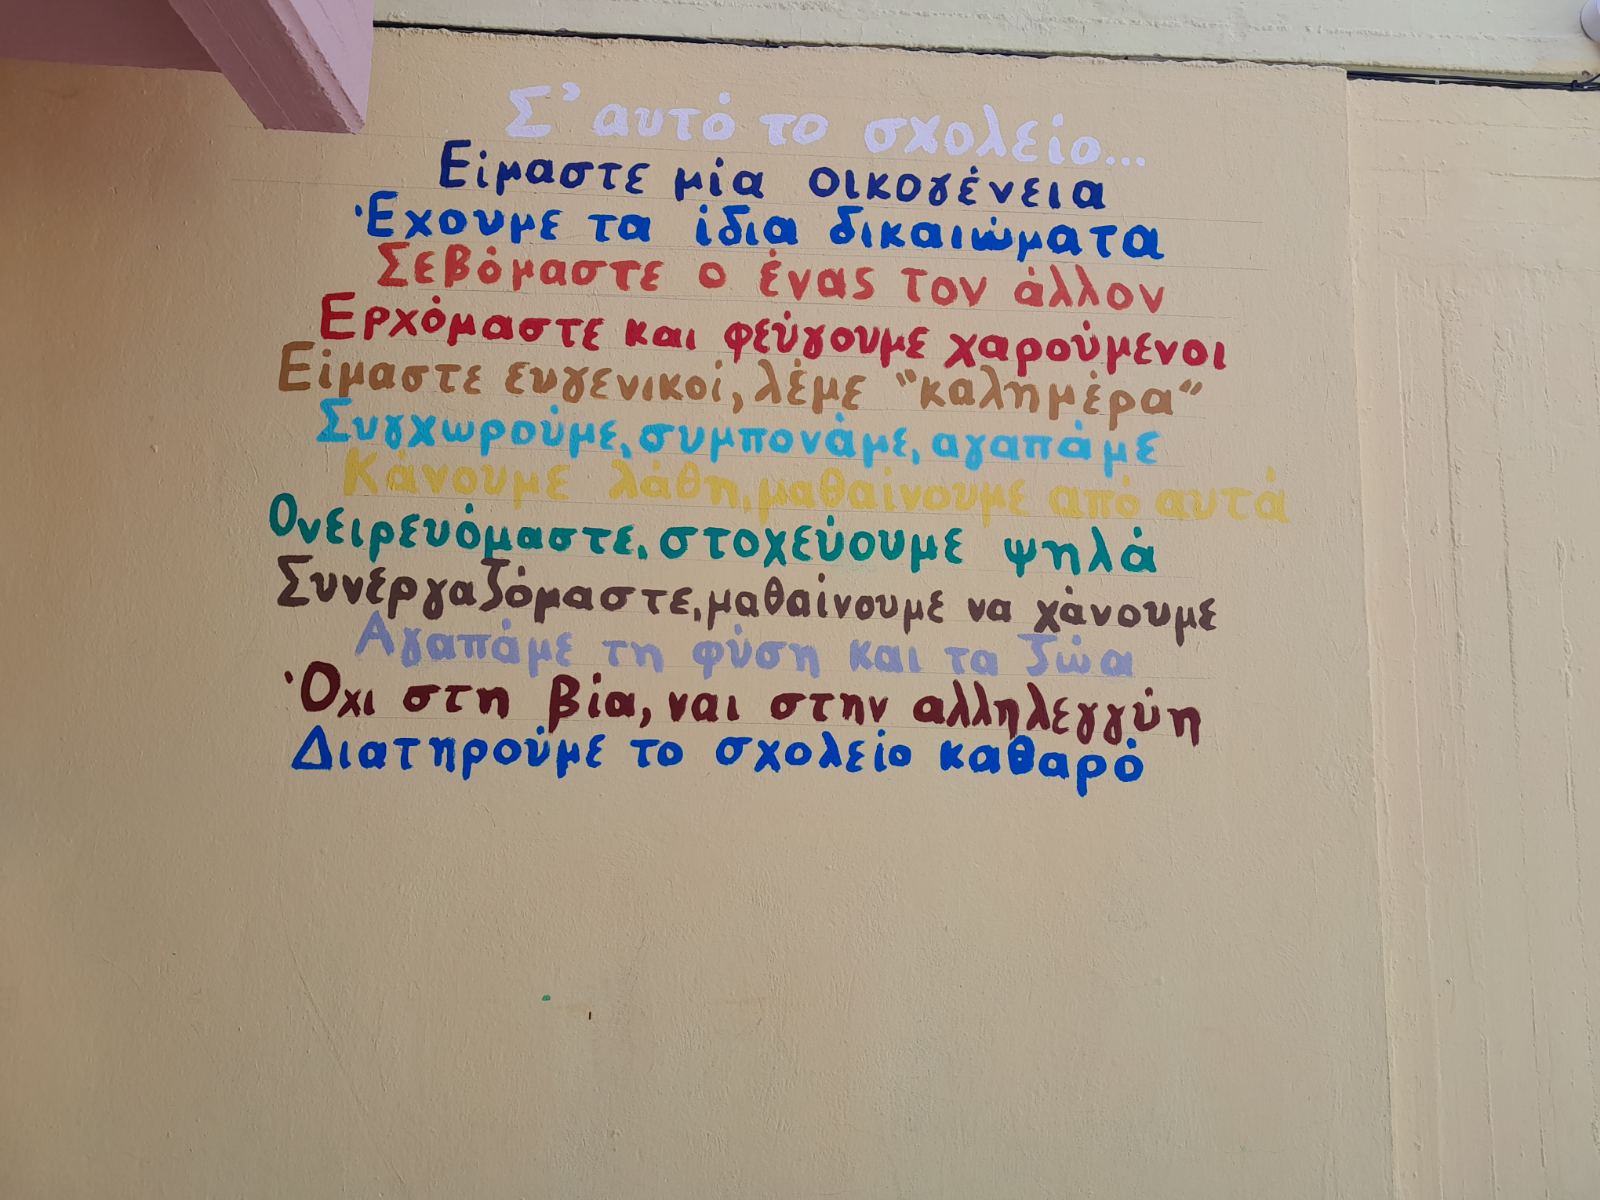 Σ' αυτό το σχολείο...
Είμαστε μία οικογένεια
Έχουμε τα ίδια δικαιώματα
Σεβόμαστε ο ένας τον άλλον
Ερχόμαστε και φεύγουμε χαρούμενοι
Είμαστε ευγενικοί, λέμε "καλημέρα"
Συγχωρούμε, συμπονάμε, αγαπάμε
Κάνουμε λάθη, μαθαίνουμε από αυτά
Ονειρευόμαστε, στοχεύουμε ψηλά
Συνεργαζόμαστε, μαθαίνουμε να χάνουμε
Αγαπάμε τη φύση και τα ζώα
Όχι στη βία, ναι στην αλληλεγγύη
Διατηρούμε το σχολείο καθαρό